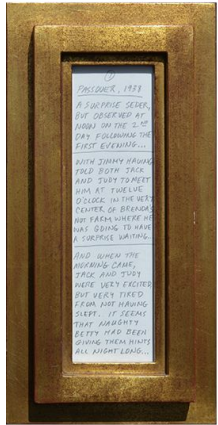 1
PASSOVER, 1938
A SURPRISE SEDER,
BUT OBSERVED AT
NOON ON THE 2ND
DAY FOLLOWING THE
FIRST EVENING...
WITH JIMMY HAVING
TOLD BOTH JACK
AND JUDY TO MEET
HIM AT TWELVE
O'CLOCK IN THE VERY
CENTER OF BRENDA'S
NOT FARM WHERE HE
WAS GOING TO HAVE
A SURPRISE WAITING...
AND WHEN THE
MORNING CAME,
JACK AND JUDY
WERE VERY EXCITED
BUT VERY TIRED
FROM NOT HAVING
SLEPT. IT SEEMS
THAT NAUGHTY
BETTY HAD BEEN
GIVING THEM HINTS
ALL NIGHT LONG...